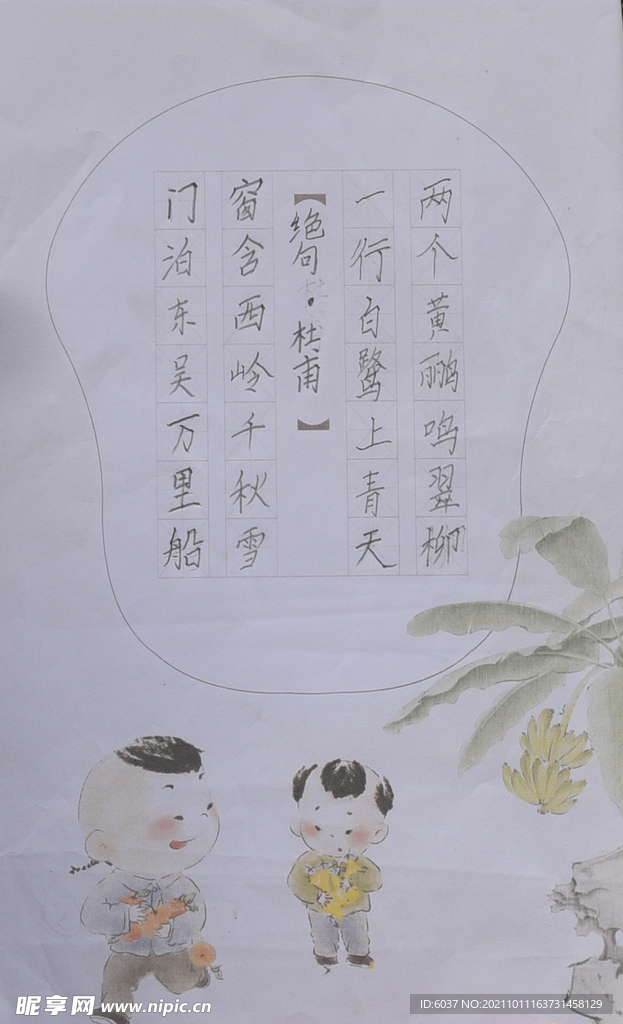 两个黄鹂鸣翠柳
一行白鹭上青天
【绝句·杜甫】
窗含西岭千秋雪
门泊东吴万里船
昵享网 www.nipic.cn
ID:6037 NO:20211011163731458129